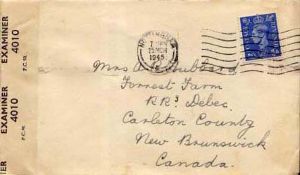 EXAMINER
4010
P.C.90.
EXAMINER
4010
P.C.90.
EXAMINER
4010
1945
Mrs A Hubbard
Forrest Farm
R.R.3 Debec.
Carleton County
New Brunswick
Canada.